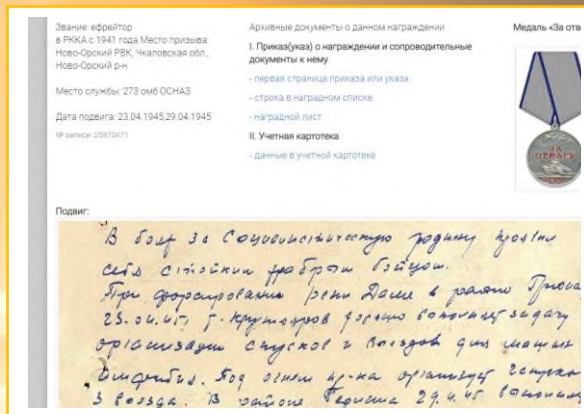 Звание: ефрейтор
в РККА с 1941 года Место призыва:
Ново-Орский РВК, Чкаловская обл.,
Ново-Орский р-н
Место службы: 273 омб ОСНАЗ
Дата подвига: 23.04.1945,29.04.1945
№ записи: 25970471
Архивные документы о данном награждении
I. Приказ(указ) о награждении и сопроводительные
документы к нему
- первая страница приказа или указа
- строка в наградном списке
- наградной лист
II. Учетная картотека
- данные в учетной картотеке
Медаль «За отв
ЗА
ОТВАГУ
Подвиг:
В боях за Социалистическую родину проявил
себя стойким храбрым бойцом.
При форсировании реки Даме в районе
23.04.45 г. хорошо выполнял задачу
организации спусков и выездов для машин
Амфибия. Под огнем пр-ка организует
3 выезда. В районе 29.4.45